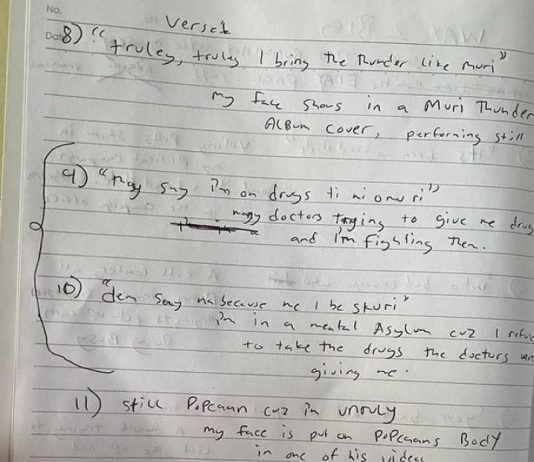 No.
Verse1
Date
8) "truley, truley I bring the thunder like muri"
my face shows in a Muri Thunder
Album cover, performing still
9) "they say i'm on drugs ti ni omu ri"
many doctors trying to give me drug
and i'm fighting them.
10) "dem say na because me I be skuri"
i'm in a mental Asylum cuz I refu
to take the drugs the doctors
giving me.
11) still Popcaan cuz i'm unruly
my face is put on Popcaans Body
in one of his videos